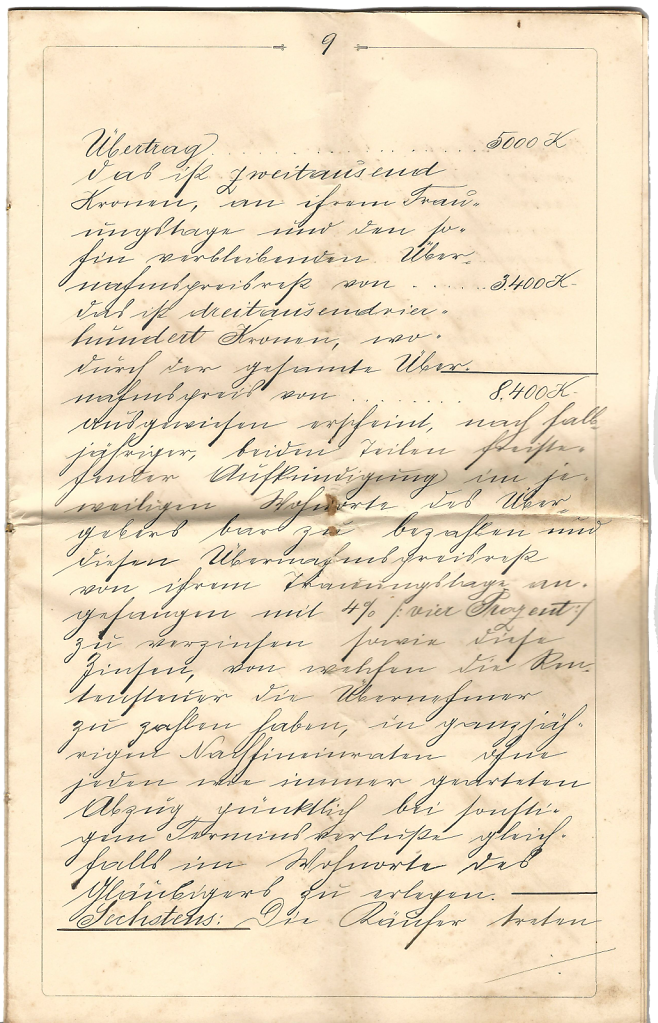 9
Übertrag . . . . . . . . . . . . . . . . . . . . 5000 K
das ist zweitausend
Kronen, an ihrem Trau-
ungstage und den so-
hin verbleibenden Über-
nahmspreisrest von . . . . . . . 3.400 K-
das ist dreitausendvier-
hundert Kronen, wo-
durch der gesamte Über-
nahmspreis von . . . . . . . . . . . 8.400 K-
ausgewiesen erscheint, nach halb-
jähriger, beiden Teilen freiste-
hender Aufkündigung im je-
weiligen Wohnorte des Über-
gebers bar zu bezahlen und
diesen Übernahmspreisrest
von ihrem Trauungstage an-
gefangen mit 4% /:vier Prozent:/
zu verzinsen sowie diese
Zinsen, von welchen die Ren-
tensteuer die Übernehmer
zu zahlen haben, in ganzjäh-
rigen Nachhineinraten ohne
jeden wie immer gearteten
Abzug pünktlich bei sonsti-
gem Terminsverluste gleich-
falls im Wohnorte des
Gläubigers zu erlegen.
Sechstens: Die Käufer treten